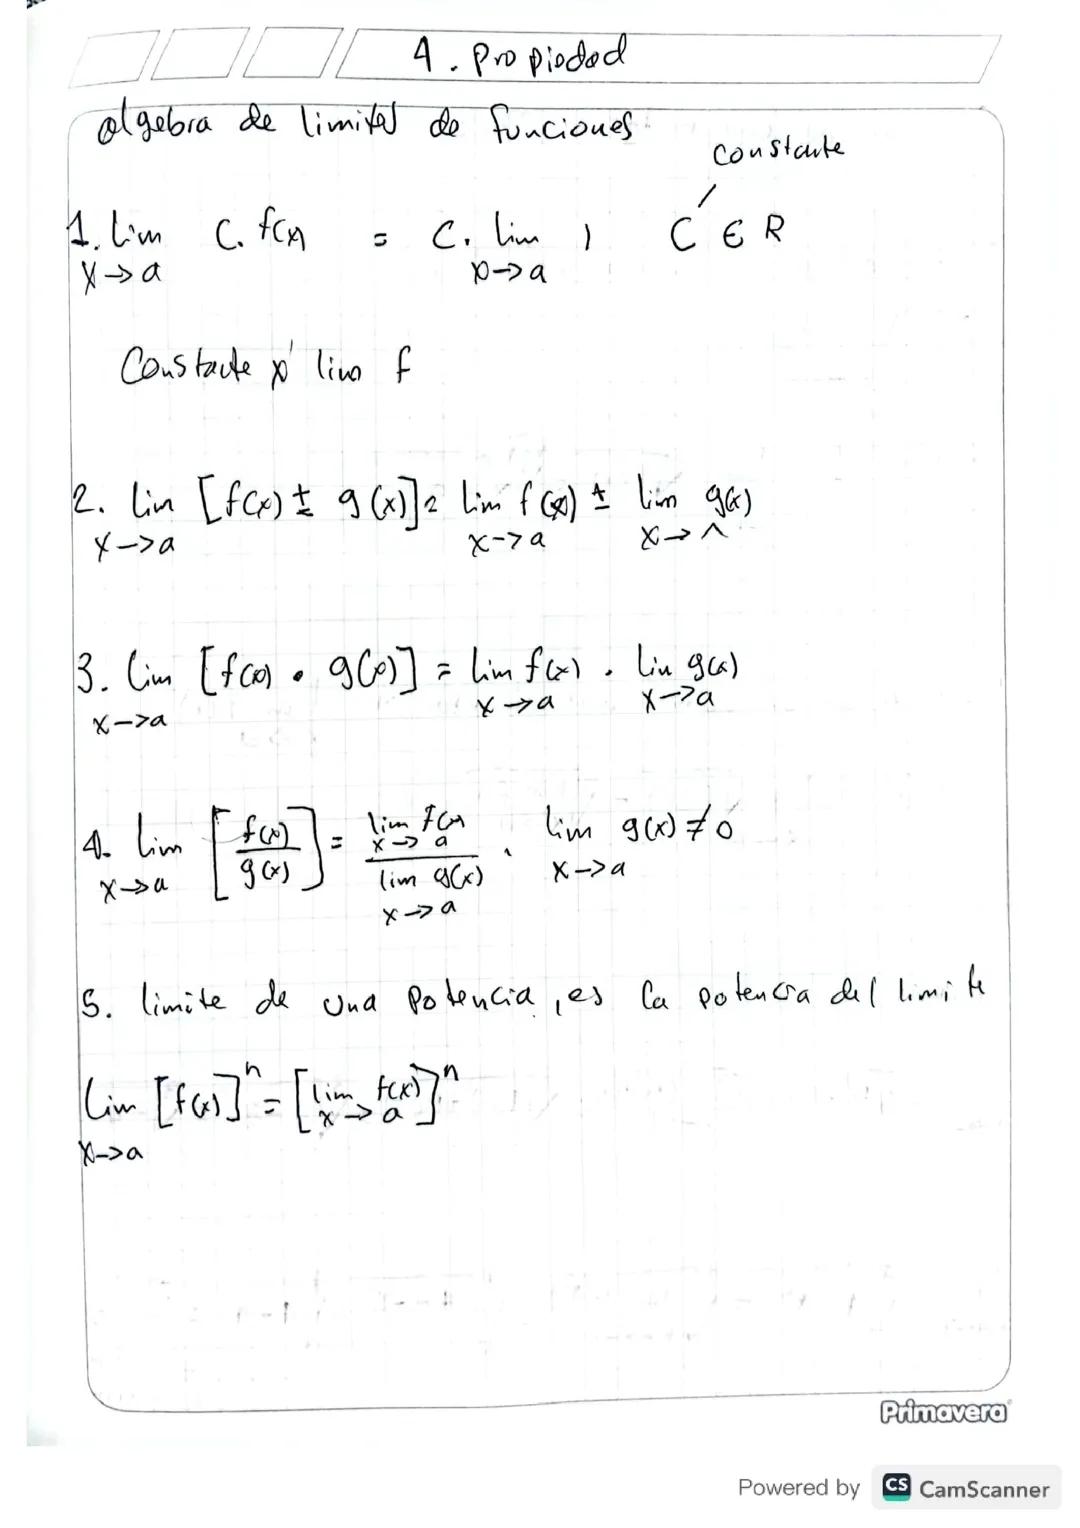 4. Propiedad
algebra de limites de funciones
constante
1. lim C. f(x) = C. lim , C ∈ R
x→a x→a
Constacte x lim f
2. lim [f(x) ± g(x)] = lim f(x) ± lim g(x)
x→a x→a x→^
3. lim [f(x) • g(x)] = lim f(x) . lim g(x)
x→a x→a x→a
4. lim [f(x)/g(x)] = lim f(x) / lim g(x) , lim g(x) ≠ 0
x→a x→a x→a x→a
5. limite de una potencia, es la potencia del limite
lim [f(x)]^n = [lim f(x)]^n
x→a x→a
Primavera
Powered by CS CamScanner